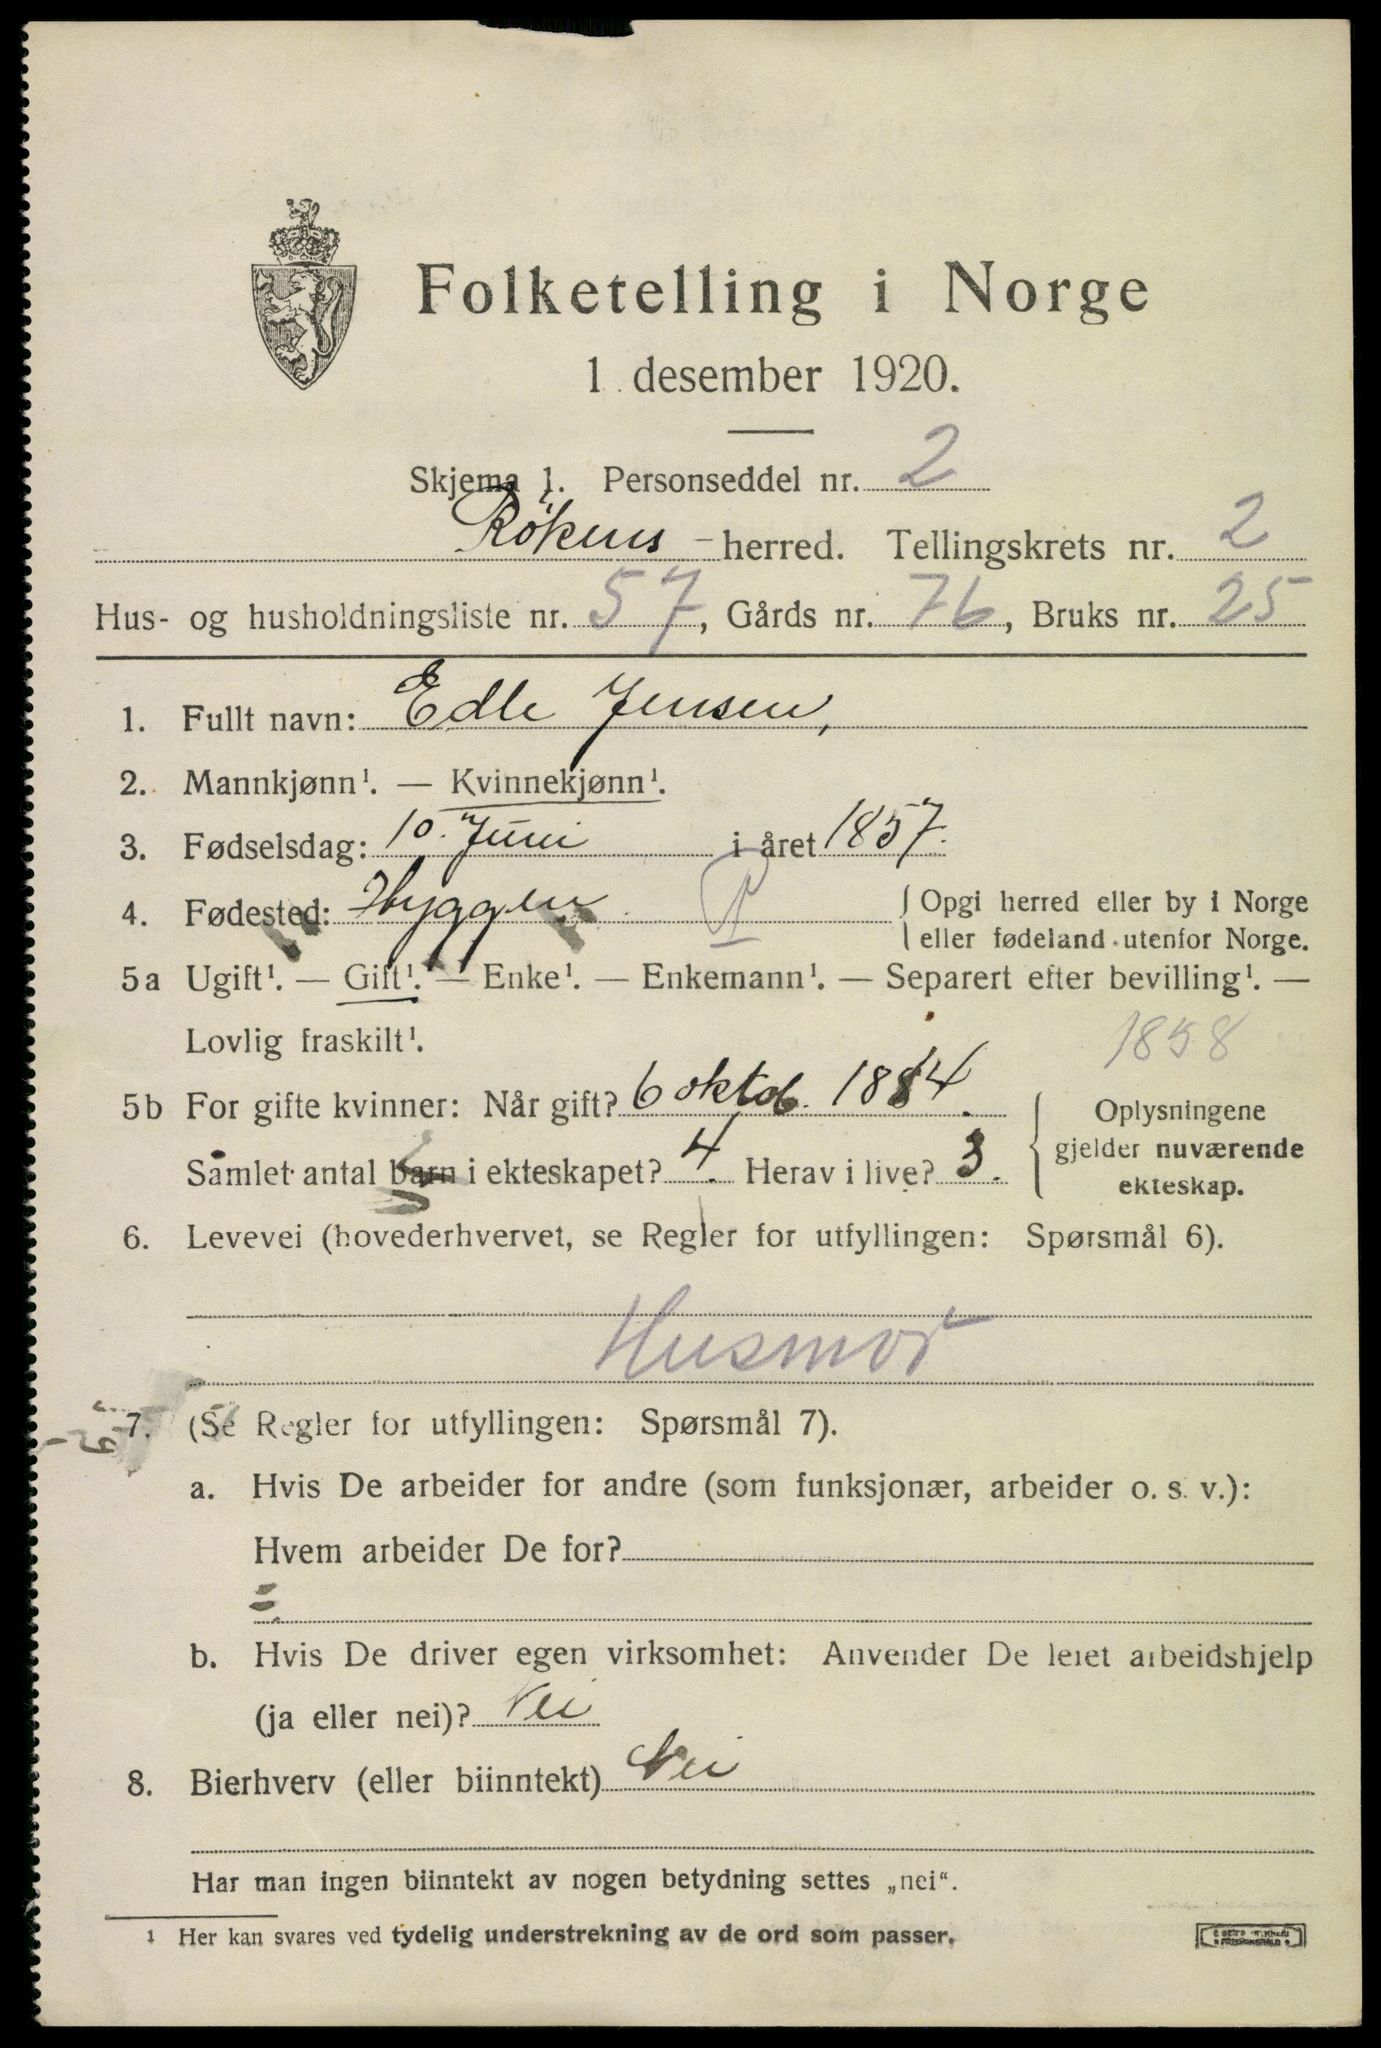 Folketelling i Norge
1. desember 1920.
Skjema 1. Personseddel nr. 2
Rökens - herred. Tellingskrets nr. 2
Hus- og husholdningsliste nr. 57, Gårds nr. 76, Bruks nr. 25
1. Fullt navn: Edle Jensen,
2. Mannkjønn¹. — Kvinnekjønn¹.
3. Fødselsdag: 10. Juni i året 1857.
4. Fødested: Hyggen { Opgi herred eller by i Norge
eller fødeland utenfor Norge.
5a Ugift¹. — Gift¹. — Enke¹. — Enkemann¹. — Separert efter bevilling¹. —
Lovlig fraskilt¹.
1858
5b For gifte kvinner: Når gift? 6 oktob. 1884. { Oplysningene
gjelder nuværende
Samlet antal barn i ekteskapet? 4. Herav i live? 3.
ekteskap.
6. Levevei (hovederhvervet, se Regler for utfyllingen: Spørsmål 6).
Husmor
7. (Se Regler for utfyllingen: Spørsmål 7).
a. Hvis De arbeider for andre (som funksjonær, arbeider o. s. v.):
Hvem arbeider De for?
b. Hvis De driver egen virksomhet: Anvender De leiet arbeidshjelp
(ja eller nei)? Nei
8. Bierhverv (eller biinntekt) Nei
Har man ingen biinntekt av nogen betydning settes „nei“.
¹ Her kan svares ved tydelig understrekning av de ord som passer.